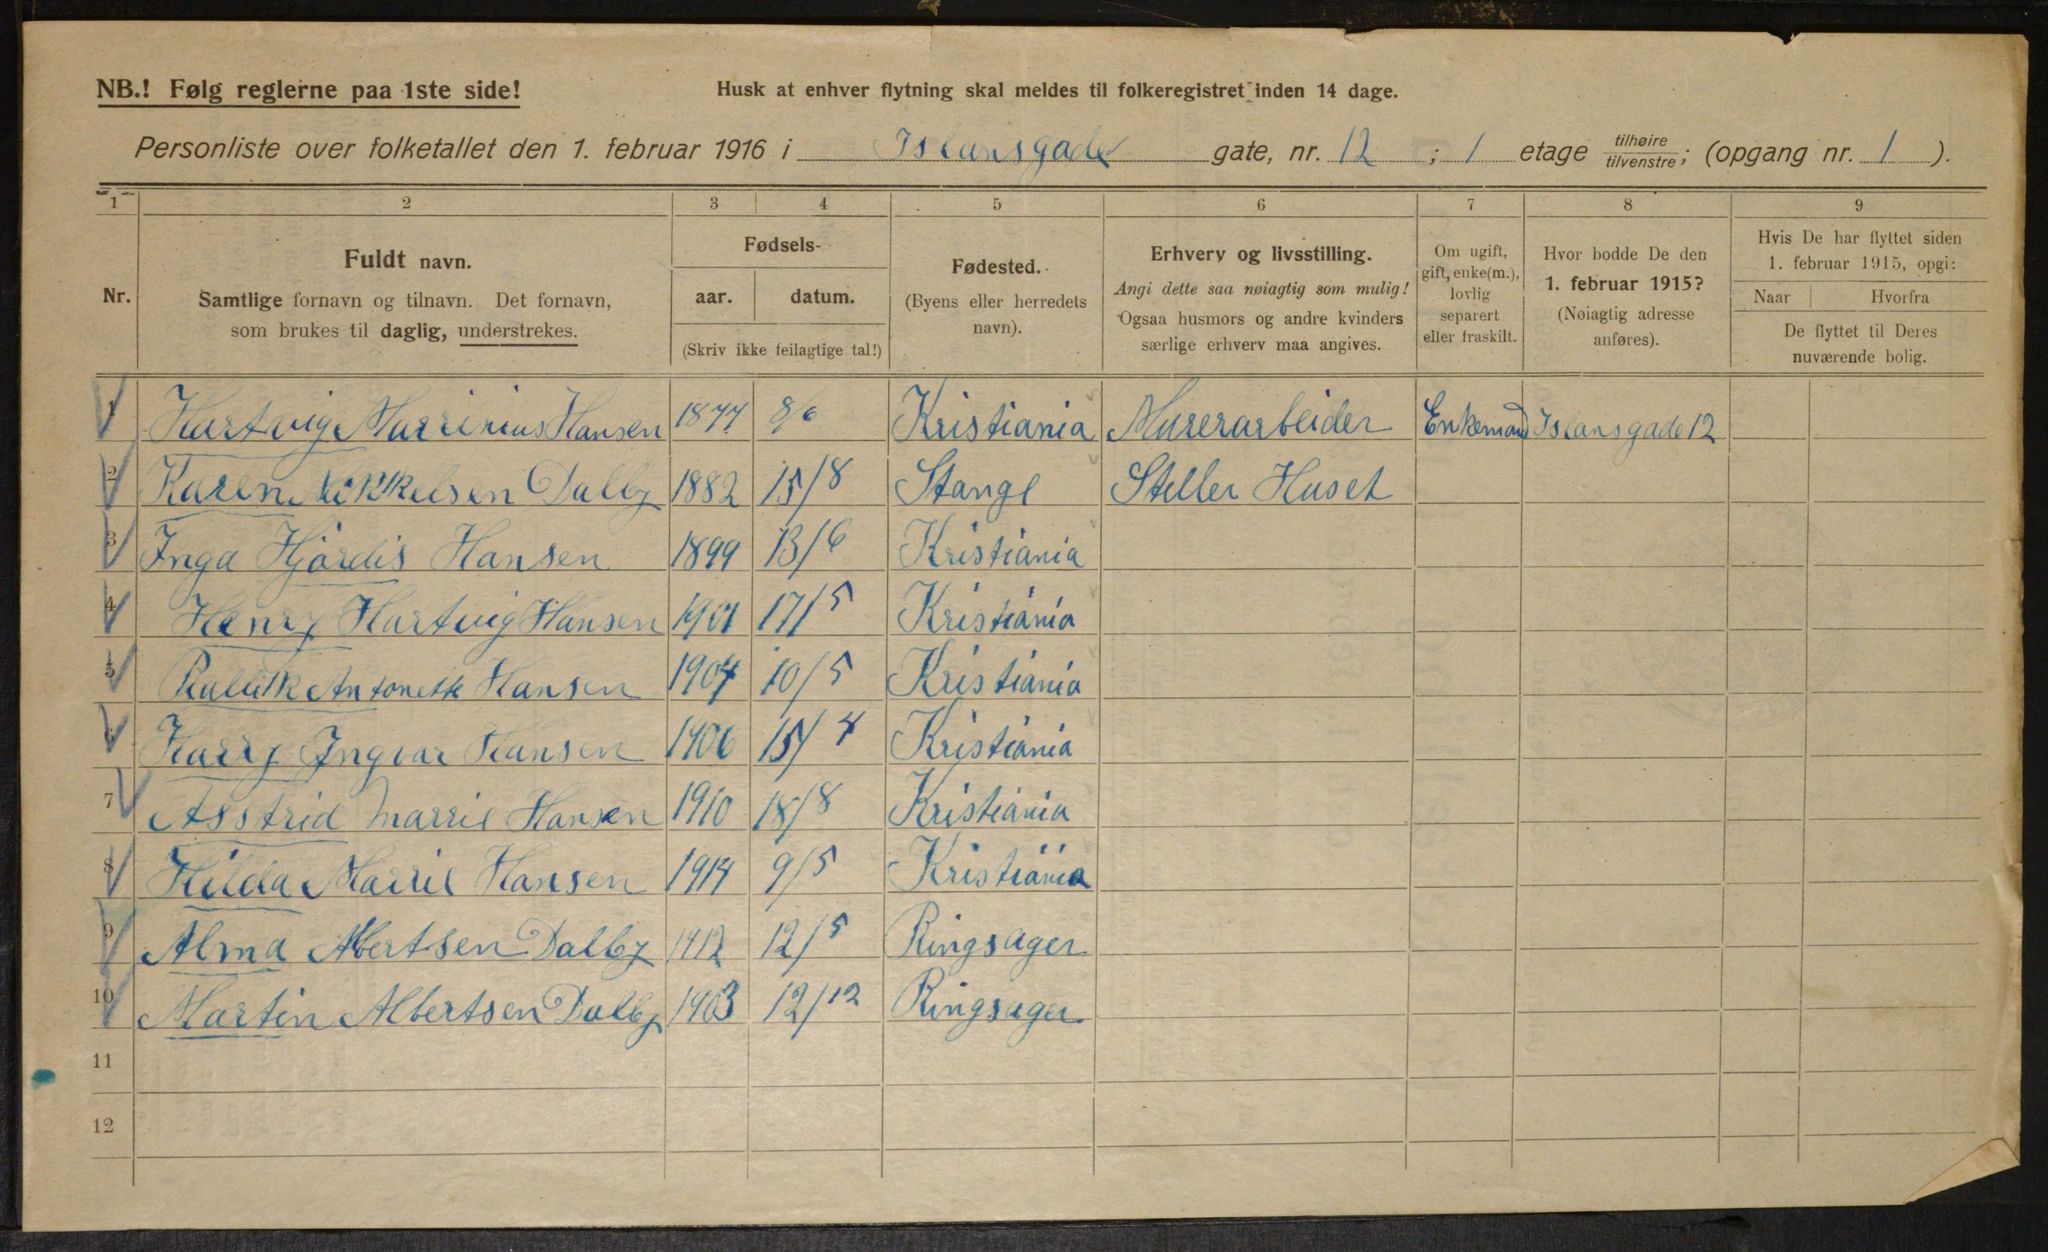 NB.! Følg reglerne paa 1ste side!
Husk at enhver flytning skal meldes til folkeregistret inden 14 dage.
Personliste over folketallet den 1. februar 1916 i Islansgade gate, nr. 12 ; 1 etage tilhøire / tilvenstre; (opgang nr. 1 ).
1 2 3 4 5 6 7 8 9
Nr.
Fuldt navn.
Samtlige fornavn og tilnavn. Det fornavn,
som brukes til daglig, understrekes.
Fødsels-
aar. datum.
(Skriv ikke feilagtige tal!)
Fødested.
(Byens eller herredets
navn).
Erhverv og livsstilling.
Angi dette saa nøiagtig som mulig!
Ogsaa husmors og andre kvinders
særlige erhverv maa angives.
Om ugift,
gift, enke(m.),
lovlig
separert
eller fraskilt.
Hvor bodde De den
1. februar 1915?
(Nøiagtig adresse
anføres).
Hvis De har flyttet siden
1. februar 1915, opgi:
Naar Hvorfra
De flyttet til Deres
nuværende bolig.
1 Hartvig Marrinius Hansen 1877 8/6 Kristiania Murerarbeider Enkemand Islansgade 12
2 Karen Mikkelsen Dalby 1882 15/8 Stange Steller Huset
3 Inga Hjørdis Hansen 1899 13/6 Kristiania
4 Henry Hartvig Hansen 1901 17/5 Kristiania
5 Antonette Hansen 1904 10/5 Kristiania
6 Harry Ingvar Hansen 1906 15/4 Kristiania
7 Asstrid Marrie Hansen 1910 18/8 Kristiania
8 Hilda Marrie Hansen 1914 9/5 Kristiania
9 Alma Albertsen Dalby 1912 12/5 Ringsager
10 Martin Albertsen Dalby 1903 12/12 Ringsager
11
12